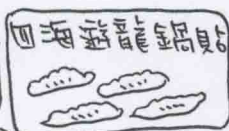 四海遊龍鍋貼